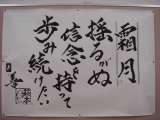 霜月
揺るがぬ
信念を持って
歩み続けたい